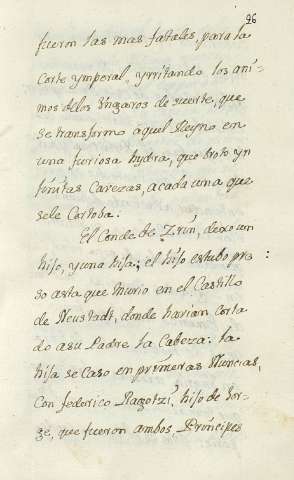 96
fueron las mas fatales, para la
Corte ymperal, yrritando los ani-
mos delos Vngaros de suerte, que
se transformo aquel Reyno en
una furiosa hydra, que broto yn
finitas Cavezas, acada una que
sele Cortaba.
El Conde de Zrin, dexo un
hijo, y una hija; el hijo estubo pre
so asta que murio en el Castillo
de Neustadt, donde havian Corta
do asu Padre la Cabeza: la
hija se Caso en primeras Nuncias,
Con federico Ragotzi, hijo de Jor-
ge, que fueron ambos, Principes